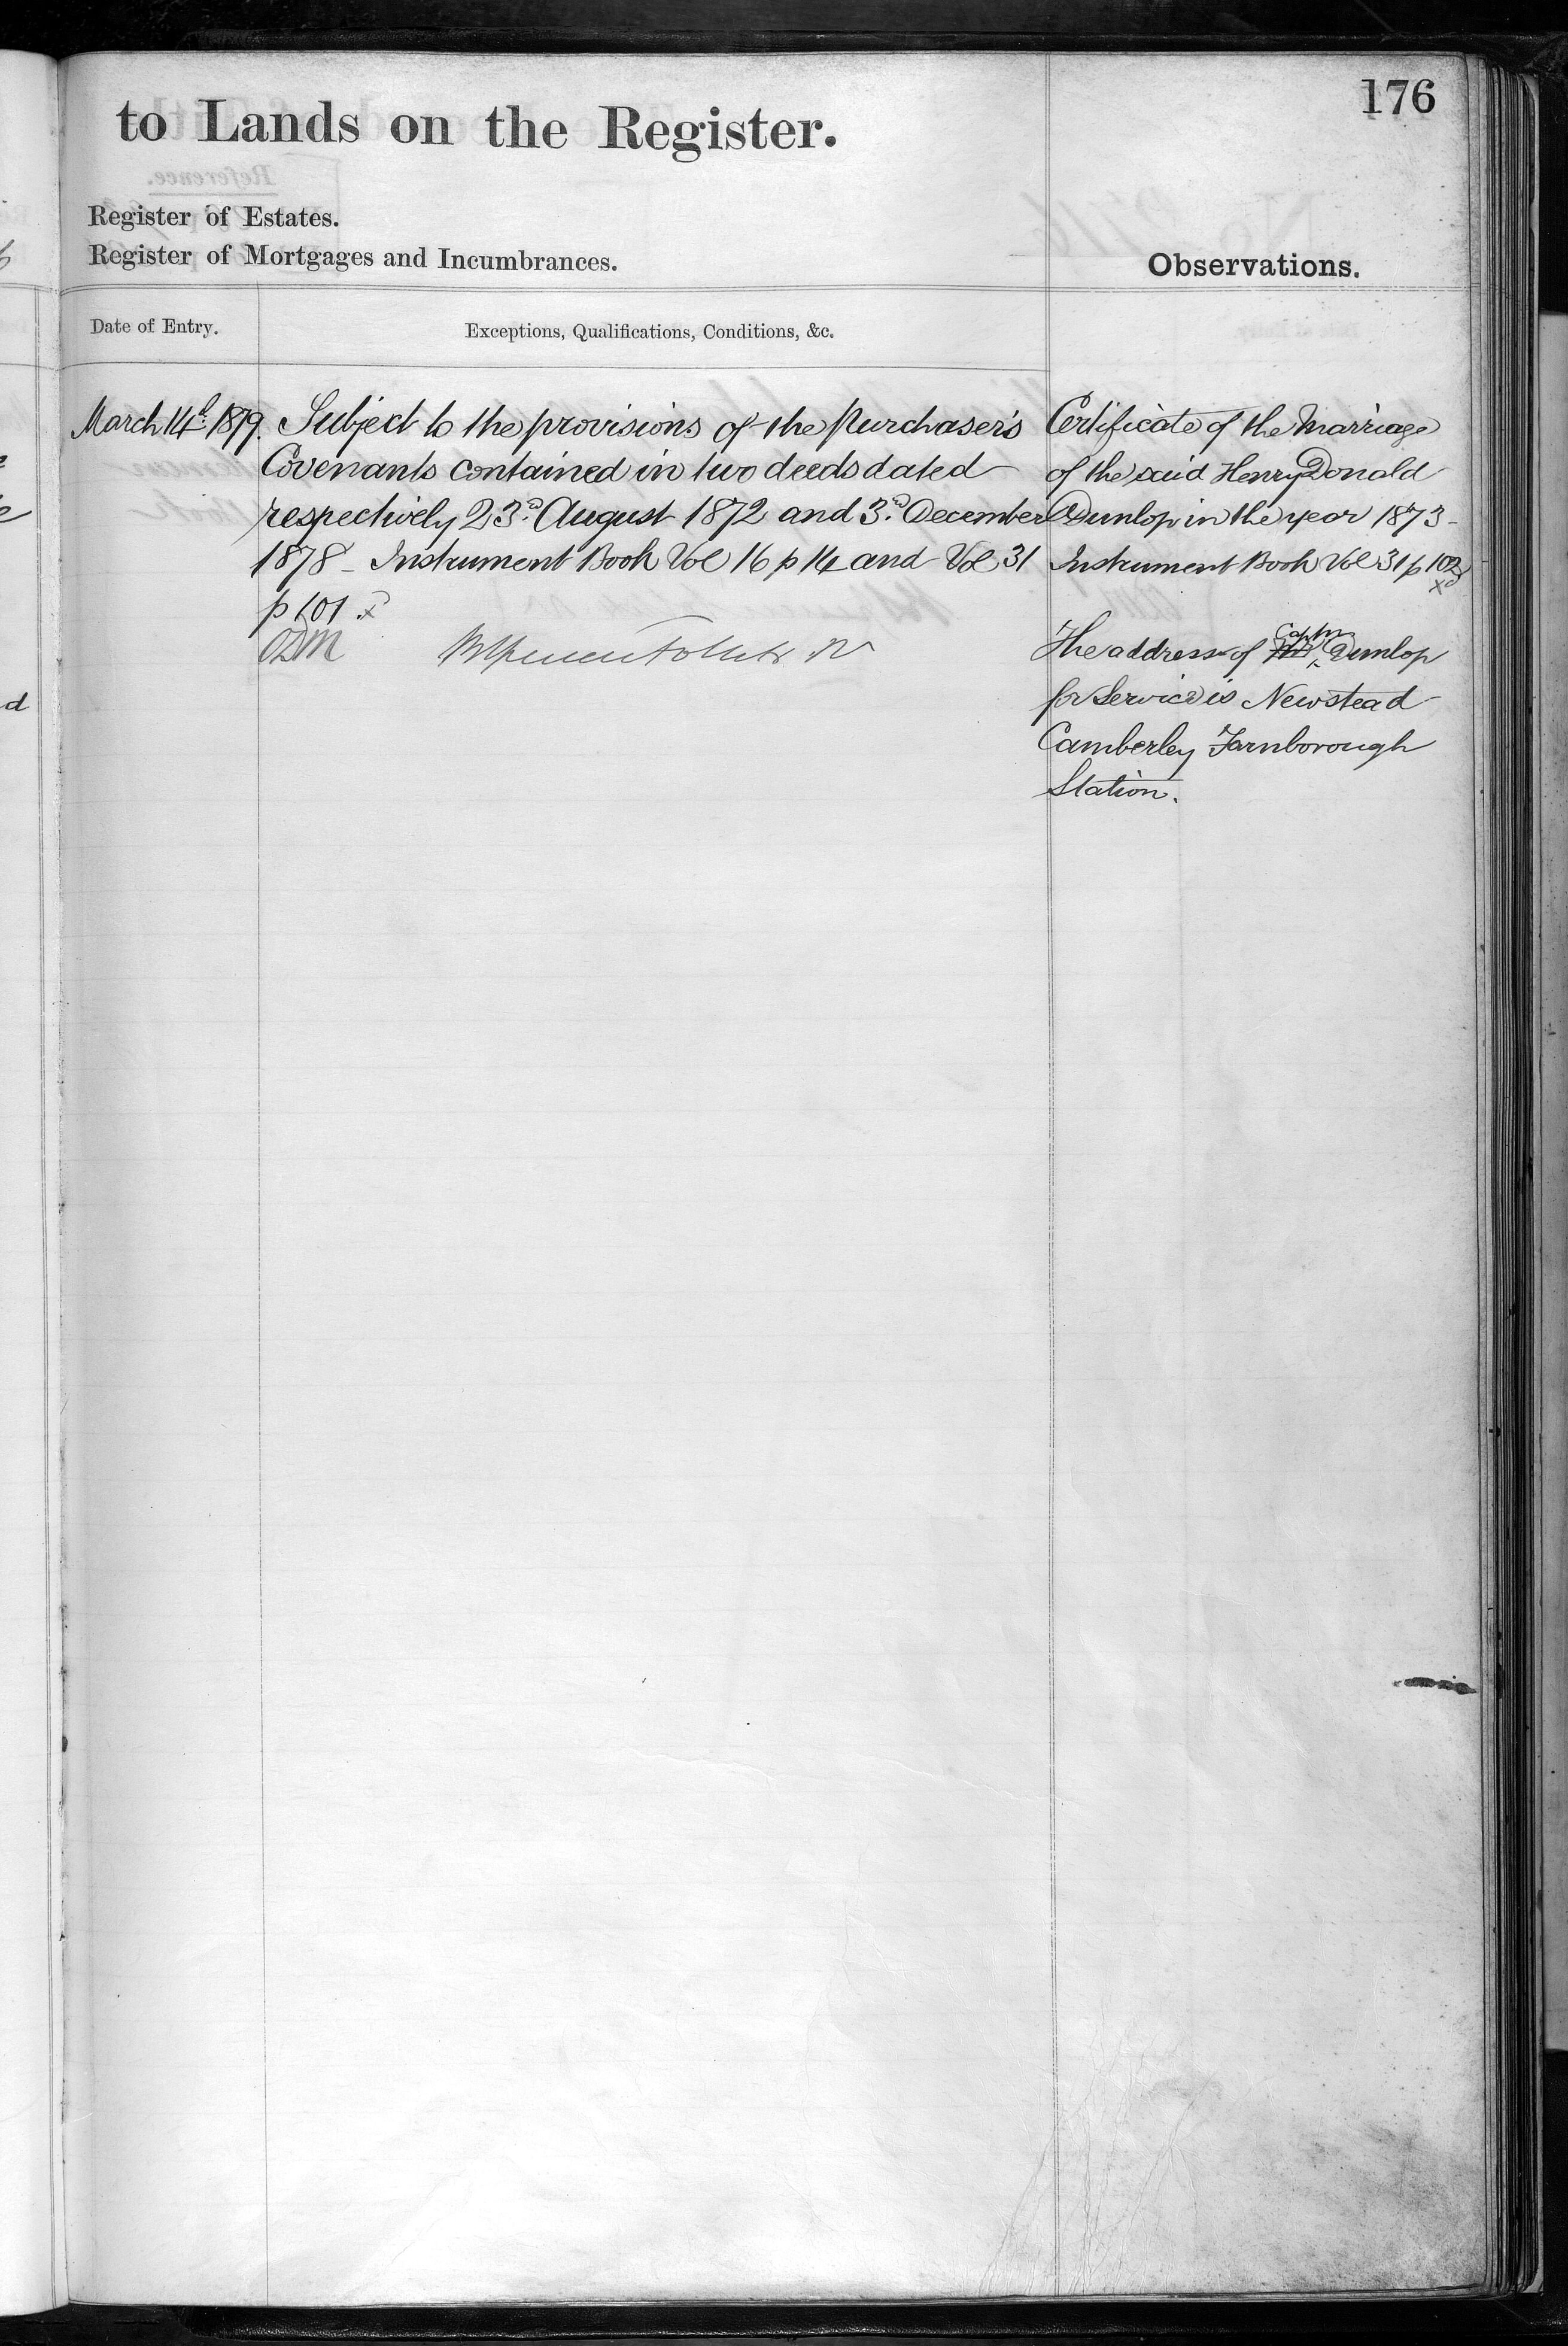 176
to Lands on the Register.
Register of Estates.
Register of Mortgages and Incumbrances.
Observations.
Date of Entry.
Exceptions, Qualifications, Conditions, &c.
March 14th 1879.
Subject to the provisions of the Purchaser's
Covenants contained in two deeds dated
respectively 23rd August 1872 and 3rd December
1878 – Instrument Book Vol 16 p 14 and Vol 31
p 101 x
Certificate of the Marriage
of the said Henry Donald
Dunlop in the year 1873 –
Instrument Book Vol 31 p 102
x
The address of Captn Dunlop
for Service is Newstead
Camberley Farnborough
Station.